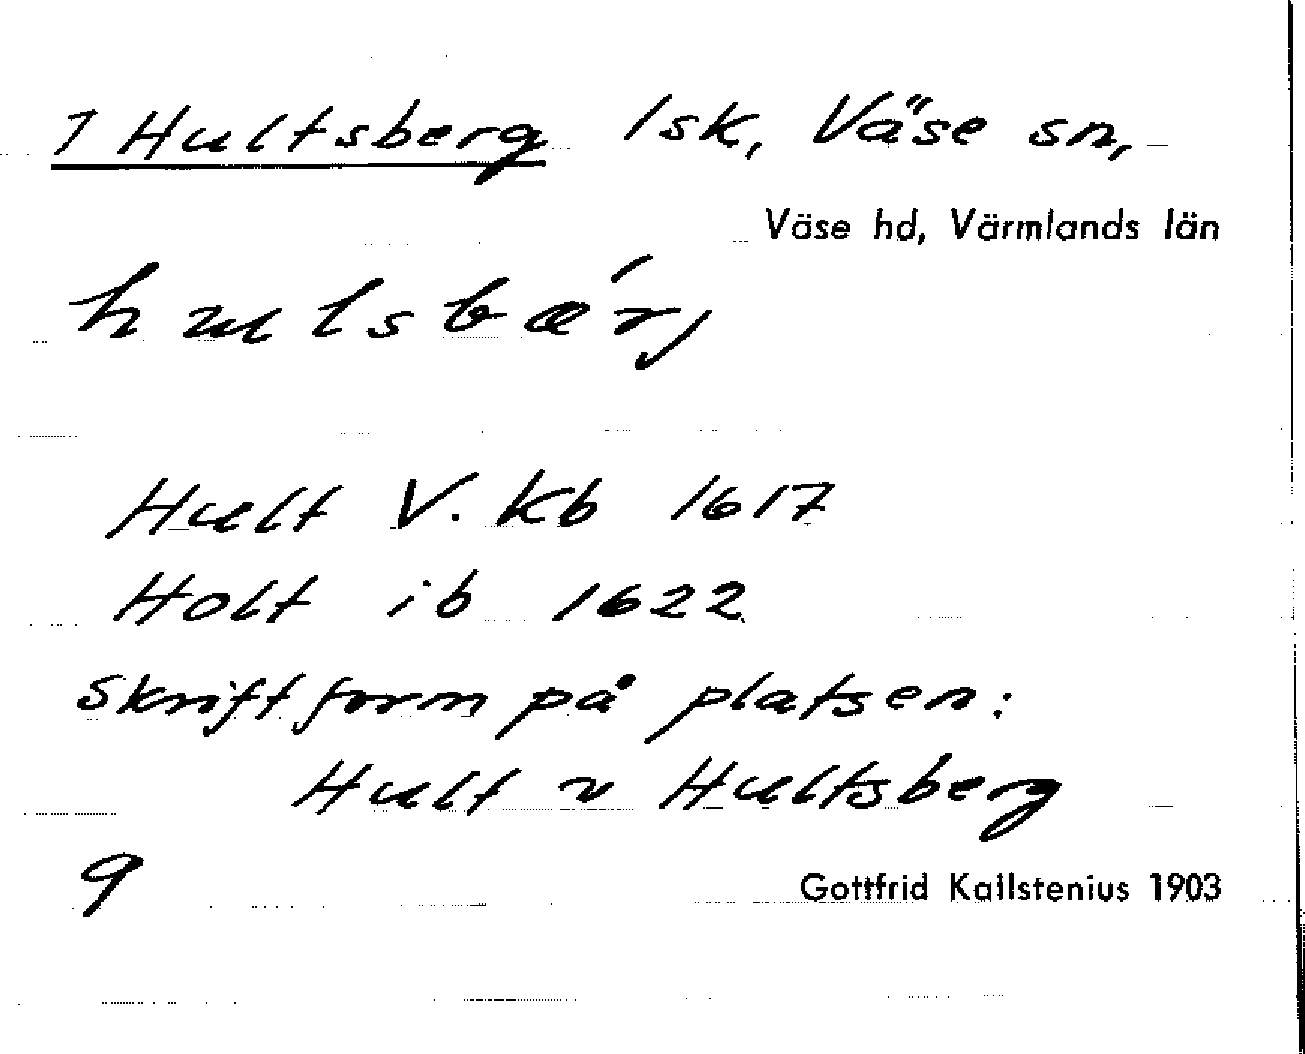 1 Hultsberg lsk, Väse sn,
Väse hd, Värmlands län
hulsbær´j
Hult V. Kb 1617
Holt ib 1622
Skriftform på platsen:
Hult v Hultsberg
9
Gottfrid Kallstenius 1903